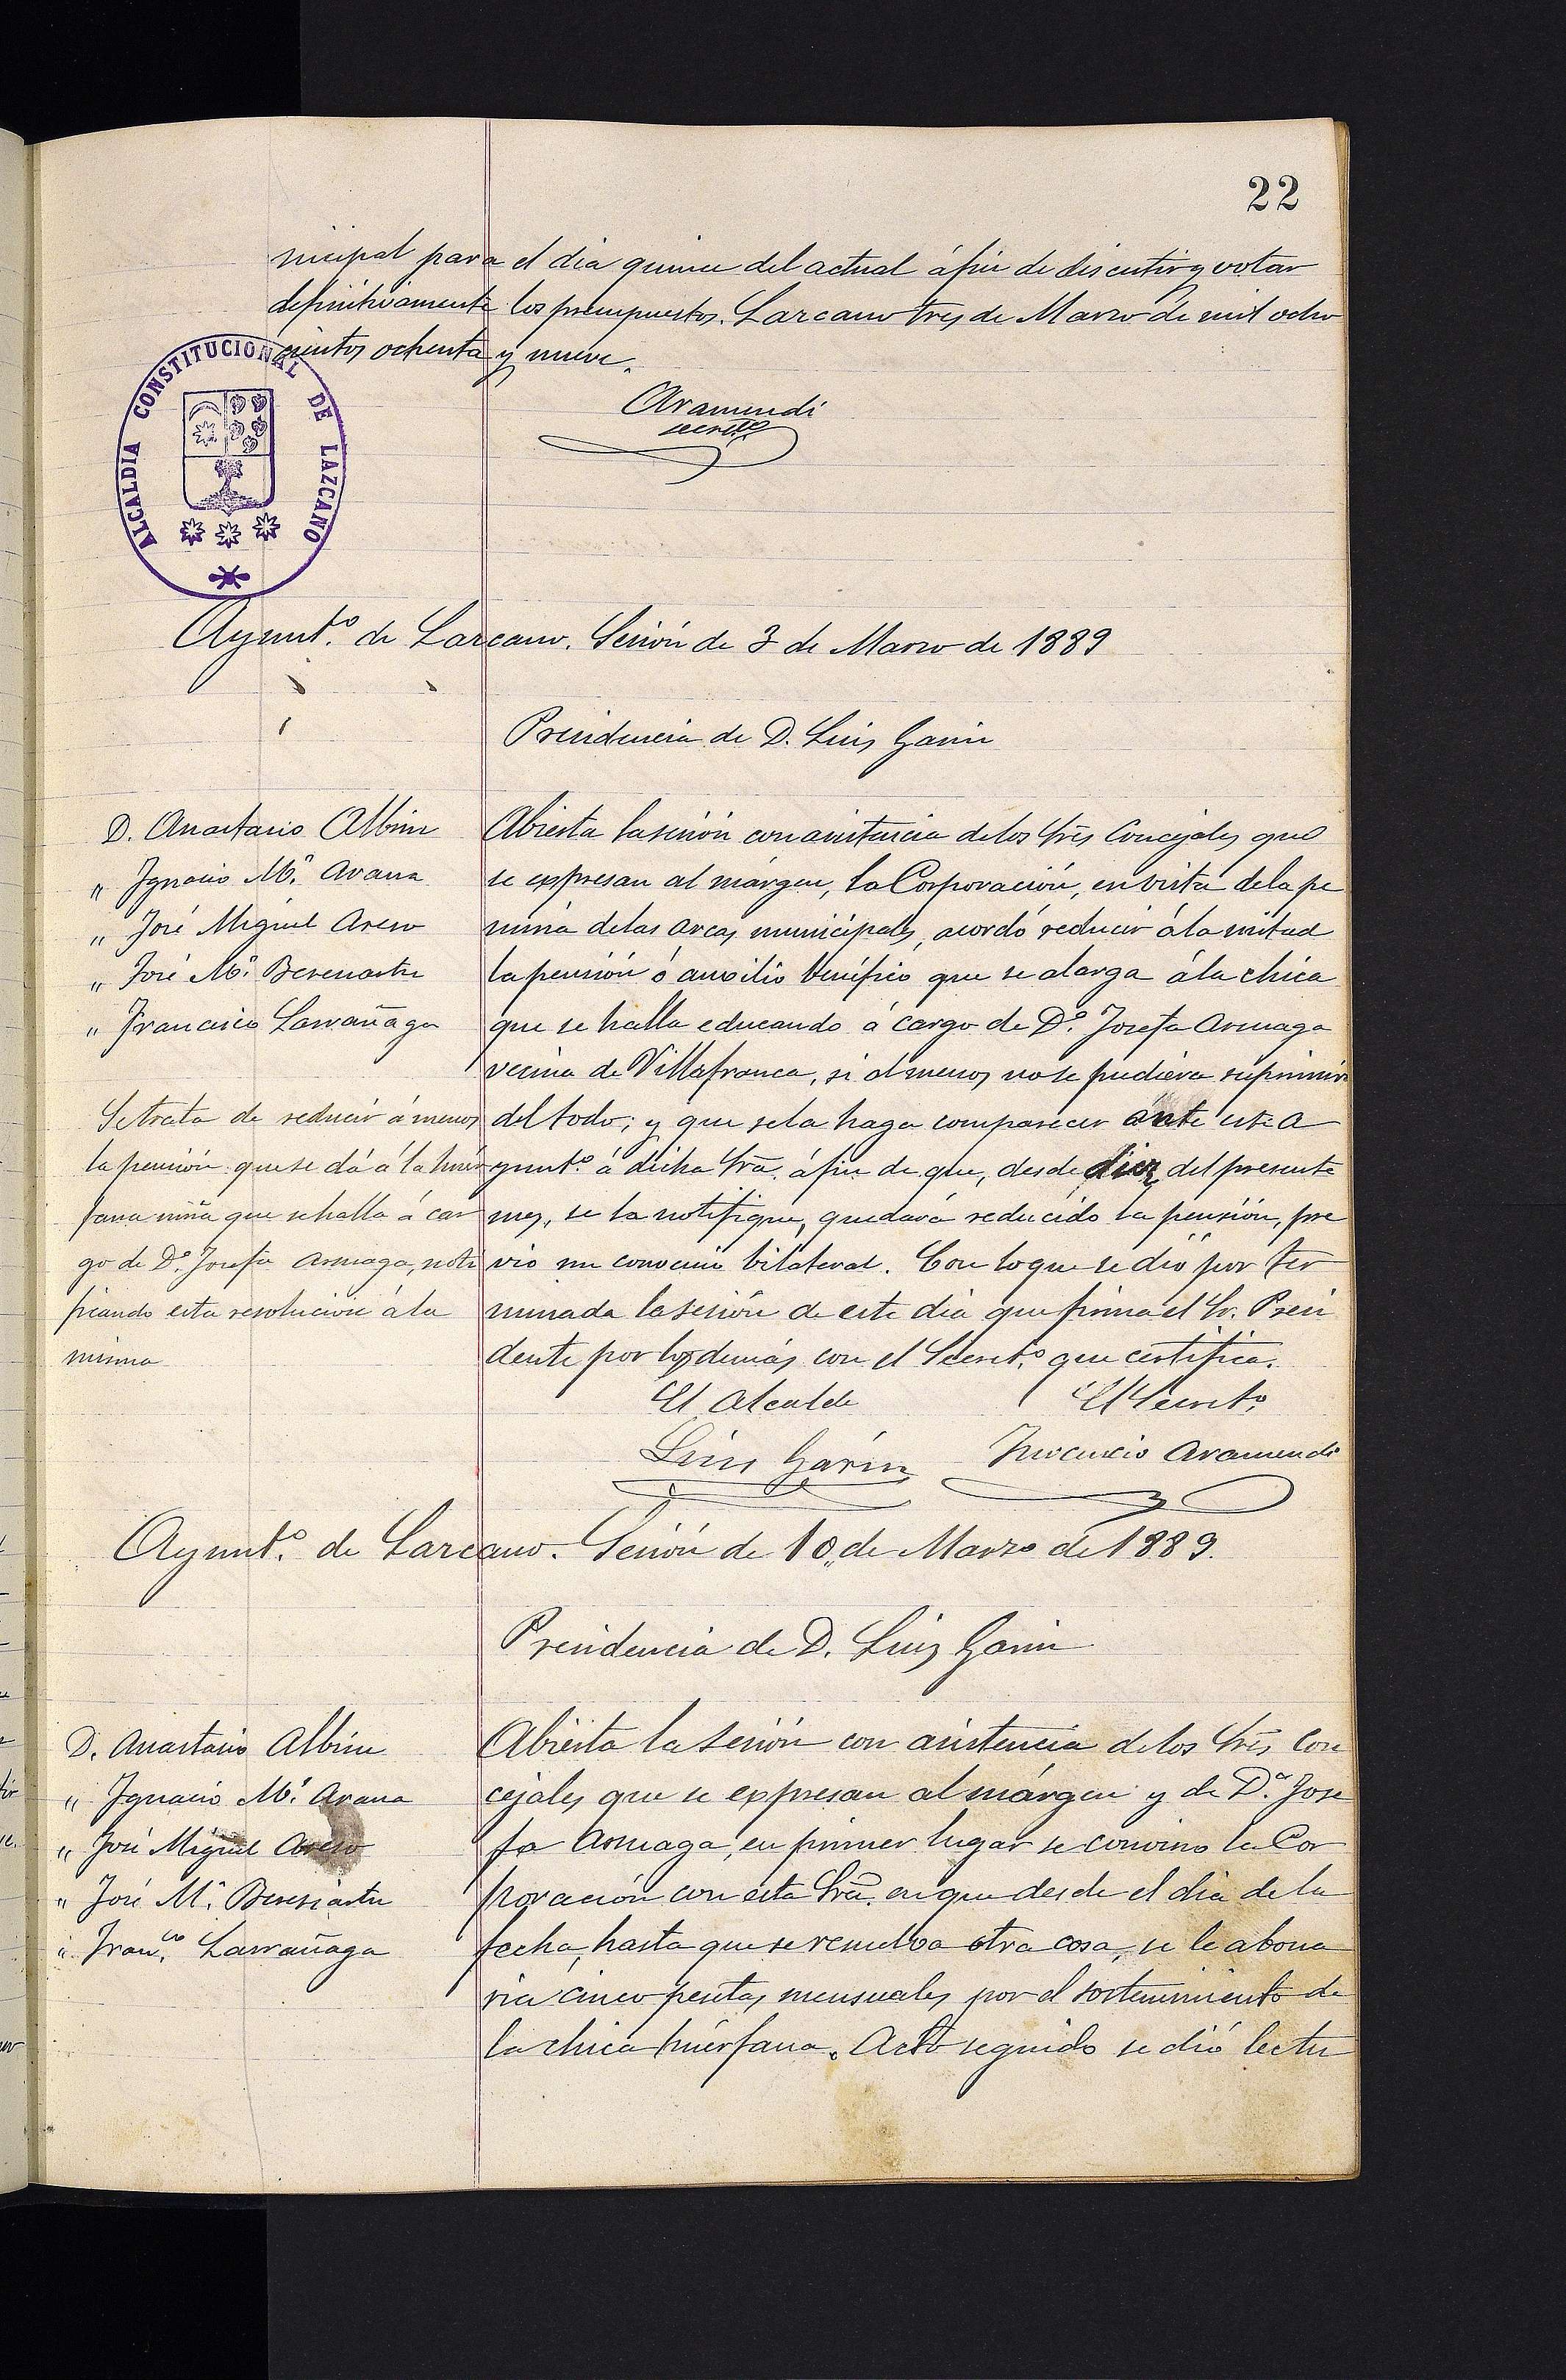 22
nicipal para el dia quince del actual áfin de discutir y votar
definitivamente los presupuestos. Lazcano tres de Marzo de mil ocho
cientos ochenta y nueve.
Aramendi
secretº
ALCALDIA CONSTITUCIONAL DE LAZCANO
Ayuntº. de Lazcano. Sesión de 3 de Marzo de 1889
Presidencia de D. Luis Garin
D. Anastasio Albisu
" Ignacio Mª. Arana
" José Miguel Areso
" José Mª. Beresiartu
" Francisco Larrañaga
Se trata de reducir á menos
la pensión que se dá á la huér
fana niña que se halla á car
go de Dª. Josefa Asmaga, noti
ficando esta resolucion á la
misma
Abierta la sesión con asistencia de los Srēs Concejales que
se expresan al márgen, la Corporación, en vista de la pe
nuria de las arcas municipales, acordó reducir á la mitad
la pensión ó auxilio benéfico que se alarga á la chica
que se halla educando á cargo de Dª. Josefa Asmaga
vecina de Villafranca, si al menos no se pudiera suprimir
del todo; y que se la haga comparecer ante este A
yuntº. á dicha Srā. áfin de que, desde diez del presente
mes, se la notifique, quedará reducido la pensión, pre
vio un convenio bilateral. Con lo que se dió por ter
minada la sesión de este dia que firma el Sr. Presi
dente por los demás con el Secretº. que certifica.
El Alcalde
El Secretº.
Luis Garín
Aramendi
Ayuntº. de Lazcano. Sesión de 10 de Marzo de 1889.
Presidencia de D. Luis Garin
D. Anastasio Albisu
" Ignacio Mª. Arana
" José Miguel Areso
" José Mª. Beresiartu
" Franco. Larrañaga
Abierta la Sesión con asistencia de los Srēs Con
cejales que se expresan al márgen y de Dª. Jose
fa Asmaga, en primer lugar se convino la Cor
poración con esta Srā. en que desde el dia de la
fecha, hasta que se resuelva otra cosa, se le abona
ria cinco pesetas mensuales por el sostenimiento de
la chica huérfana. Acto seguido se dió lectu